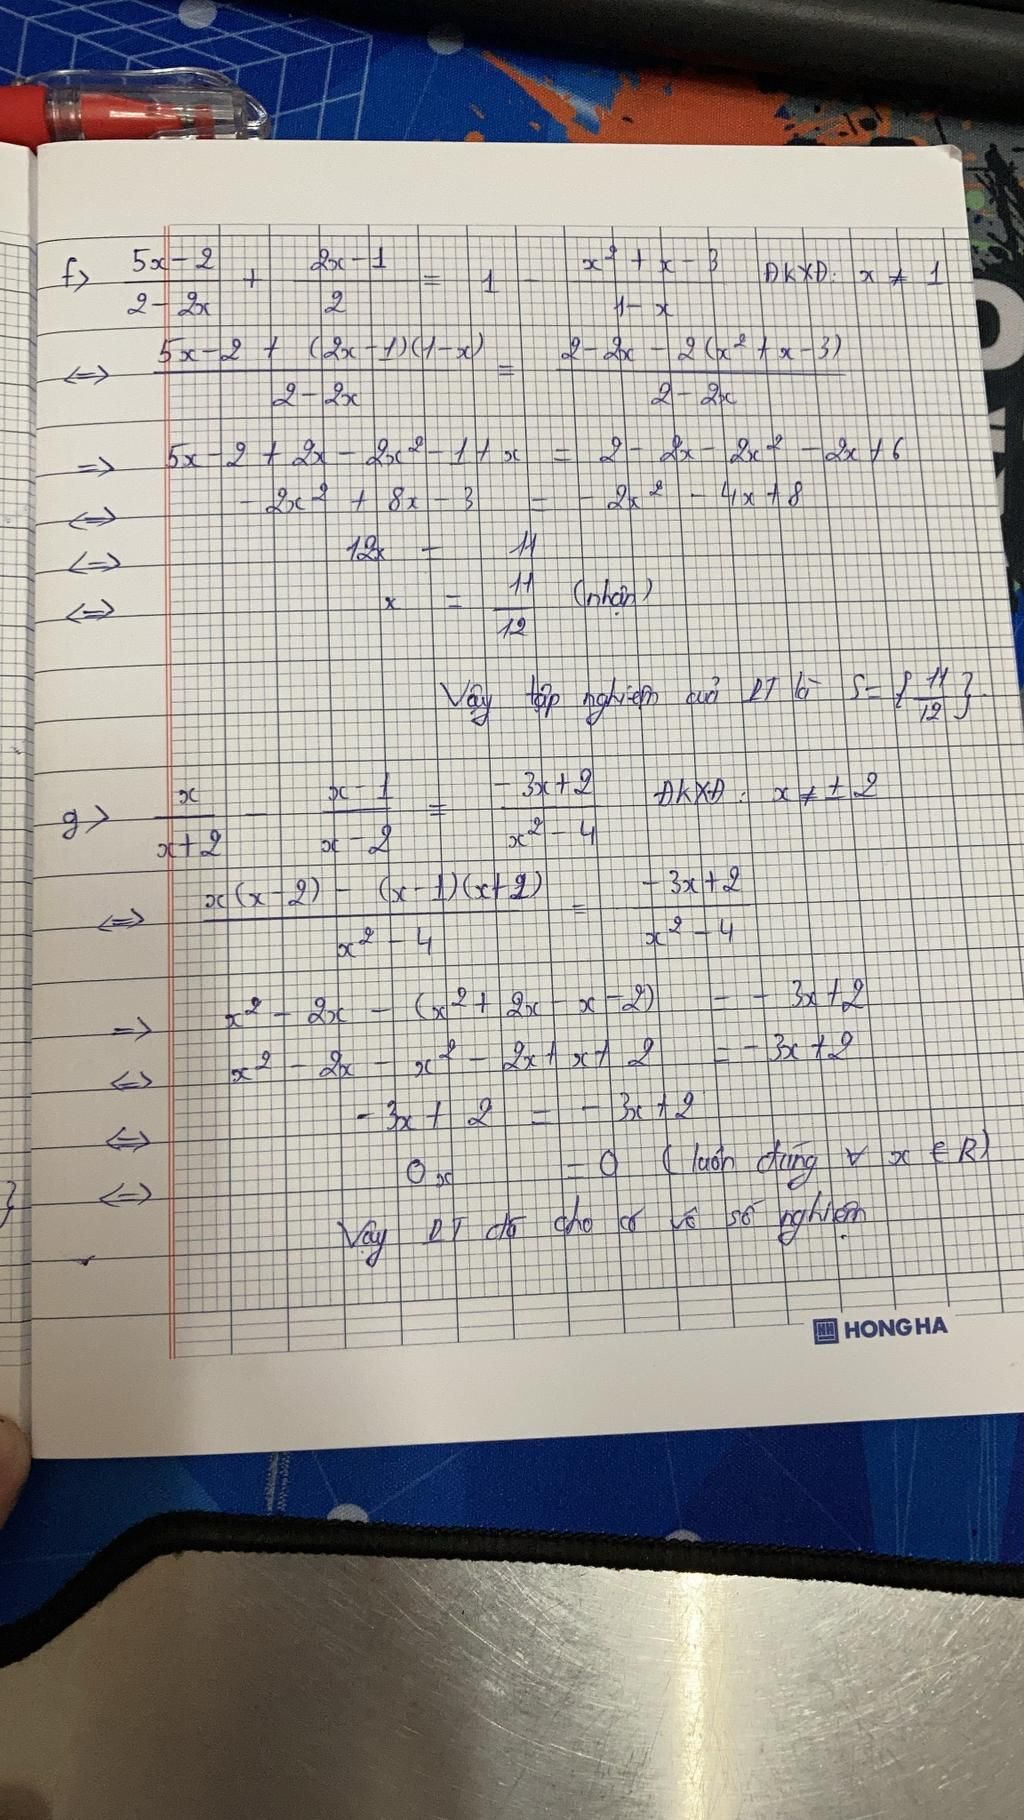 f> (5x - 2)/(2 - 2x) + (2x - 1)/2 = 1 - (x² + x - 3)/(1 - x) ĐKXĐ: x ≠ 1
<=> (5x - 2 + (2x - 1)(1 - x))/(2 - 2x) = (2 - 2x - 2(x² + x - 3))/(2 - 2x)
=> 5x - 2 + 2x - 2x² - 1 + x = 2 - 2x - 2x² - 2x + 6
<=> - 2x² + 8x - 3 = - 2x² - 4x + 8
<=> 12x = 11
<=> x = 11/12 (nhận)
Vậy tập nghiệm của PT là S = { 11/12 }.
g> x/(x + 2) - (x - 1)/(x - 2) = (- 3x + 2)/(x² - 4) ĐKXĐ: x ≠ ± 2
<=> (x(x - 2) - (x - 1)(x + 2))/(x² - 4) = (- 3x + 2)/(x² - 4)
=> x² - 2x - (x² + 2x - x - 2) = - 3x + 2
<=> x² - 2x - x² - 2x + x + 2 = - 3x + 2
<=> - 3x + 2 = - 3x + 2
<=> 0x = 0 (luôn đúng ∀ x ∈ R)
Vậy PT đã cho có vô số nghiệm
}
HH HONG HA